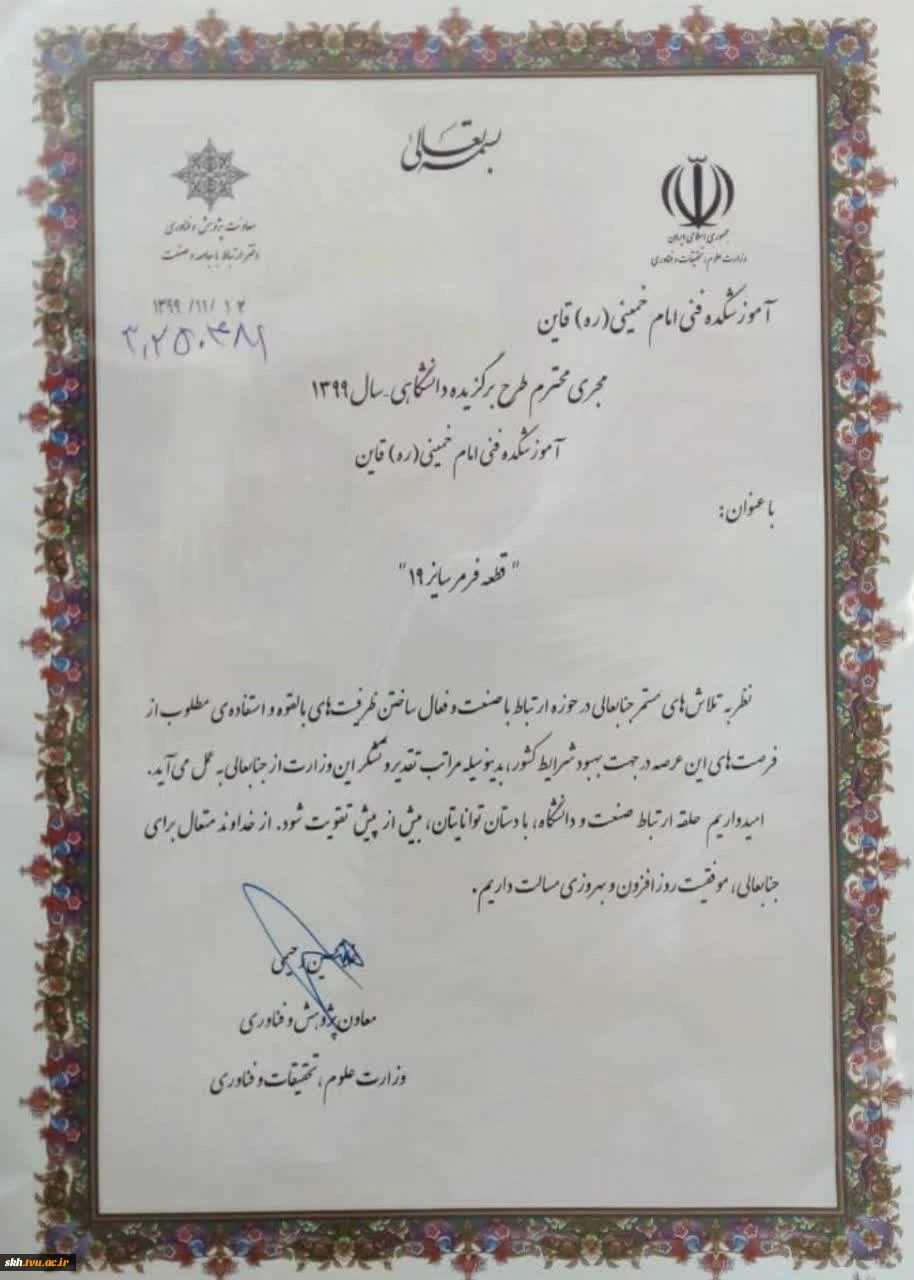 بسمه تعالی
جمهوری اسلامی ایران
وزارت علوم، تحقیقات و فناوری
معاونت پژوهش و فناوری
دفتر ارتباط با جامعه و صنعت
۱۳۹۹/۱۱/۱۲
آموزشکده فنی امام خمینی(ره) قاین
مجری محترم طرح برگزیده دانشگاهی-سال ۱۳۹۹
آموزشکده فنی امام خمینی(ره) قاین
با عنوان:
" قطعه فرمر سایز ۱۹"
نظر به تلاش‌های مستمر جنابعالی در حوزه ارتباط با صنعت و فعال ساختن ظرفیت‌های بالقوه و استفاده‌ی مطلوب از
فرصت‌های این عرصه در جهت بهبود شرایط کشور، بدینوسیله مراتب تقدیر و تشکر این وزارت از جنابعالی به عمل می‌آید.
امیدواریم حلقه ارتباط صنعت و دانشگاه، با دستان توانایتان، بیش از پیش تقویت شود. از خداوند متعال برای
جنابعالی، موفقیت روزافزون و بهروزی مسالت داریم.
حسین رحیمی
معاون پژوهش و فناوری
وزارت علوم، تحقیقات و فناوری
skh.tvu.ac.ir